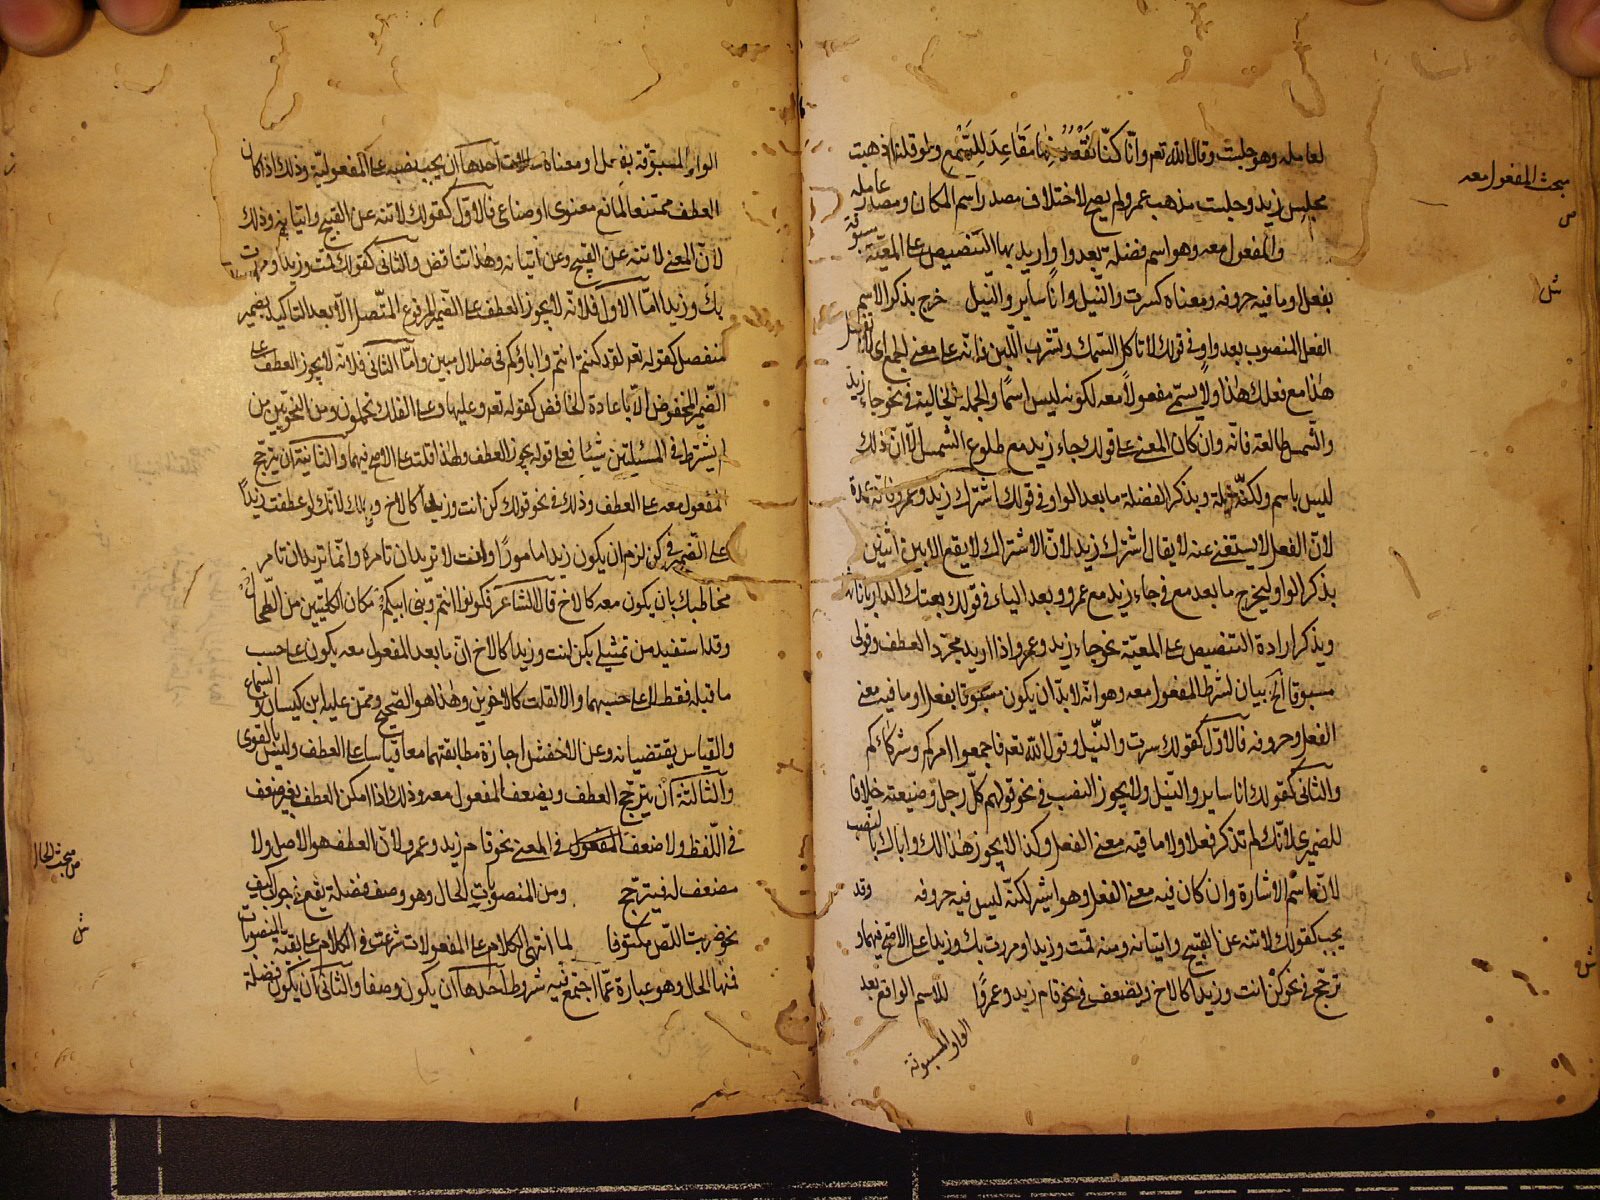 لعامله وهو جلست وقال الله تعه وانّا كنّا نَقْعُدُ منها مَقَاعِدَ لِلسَّمْعِ ولو قلت ذهبت
مجلس زيد وجلست مذهب عمرو لم يصح لاختلاف مصدر اسم المكان ومصدر عامله
والمفعول معه وهو اسم فضلة بعد واو اريد بها التنصيص على المعيّة مسبوقة
بفعل او ما فيه حروفه ومعناه كسرت والنّيل وانا ساير والنّيل خرج بذكر الاسم
الفعل المنصوب بعد واو في قولك لا تاكل السّمك وتشرب اللّبن فانّه على معنى الجمع اى لا تفعل
هٰذا مع فعلك هٰذا ولا يسمّى مفعولاً معه لكونه ليس اسمًا والجملة الحالية في نحو جاء زيد
والشّمس طالعة فانّه وان كان المعنى على قولك جاء زيد مع طلوع الشّمس الّا انّ ذلك
ليس باسم ولكنّه جملة وبذكر الفضلة ما بعد الواو في قولك اشترك زيد وعمرو فانّه عمدة
لانّ الفعل لا يستغنى عنه لا يقال اشترك زيد لانّ الاشتراك لا يقع الا بين اثنين
بذكر الواو ليخرج ما بعد مع في جاء زيد مع عمرو وبعد الباء في قولك بعتك الدار باثاثها
وبذكر ارادة التنصيص على المعيّة نحو جاء زيد وعمرو اذا اريد مجرّد العطف وقولى
مسبوقا الخ بيان لشرط المفعول معه وهو انّه لا بدّ ان يكون مسبوقا بفعل او ما فيه معنى
الفعل وحروفه فالاوّل كقولك سرت والنّيل وقول الله تعه فاجمعوا امركم وشركاءكم
والثانى كقولك انا ساير والنّيل ولا يجوز النصب في نحو قولهم كلّ رجل وضيعته خلافا
للصيمرى لانّك لم تذكر فعلا ولا ما فيه معنى الفعل وكذا لا يجوز هٰذا لك واباك بالنصب
لانّ اسْم الاشارة وان كان فيه معنى الفعل وهو اشير لكنّه ليس فيه حروفه وقد
يجب كقولك لا تنه عن القبيح واتيانه ومنه قمت وزيدا ومررت بك وزيدا على الاصح فيهما و
ترجّح في نحو كن انت وزيدا كالاخ ويضعف في نحو قام زيد وعمرًا للاسم الواقع بعد
الواو المسبوقة
مبحث المفعول معه
ص
ش
ش
الواو المسبوقة بفعل او معناه حالات احدها ان يجب نصبه على المفعوليّة وذلك اذا كان
العطف ممتنعا لمانع معنوى او صناعى فالاوّل كقولك لا تنه عن القبيح واتيانه وذلك
لانّ المعنى لا تنه عن القبيح وعن اتيانه وهٰذا تناقض والثانى كقولك قمت وزيدا ومررت
بك وزيدا امّا الاول فلانّه لا يجوز العطف على الضّمير المرفوع المتّصل الّا بعد التاكيد بضمير
منفصل كقوله تعه لقد كنتم انتم واباؤكم في ضلال مبين وامّا الثانى فلانّه لا يجوز العطف على
الضّمير المخفوض الّا باعادة الخافض كقوله تعه وعليها وعلى الفلك تحملون ومن النحويين من
لم يشترط في المسئلتين شيئا فعلى قوله يجوز العطف ولهٰذا قلت على الاصح فيهما والثانية ان يترجّح
المفعول معه على العطف وذلك في نحو قولك كن انت وزيدا كالاخ وذلك لانّك لو عطفت زيدًا
على الضّمير في كن لزم ان يكون زيدا مامورًا وانت لا تريد ان تامره وانّما تريد ان تامر
مخاطبك بان يكون معه كالاخ قال الشاعر فكونوا انتم وبنى ابيكم مكان الكليتين من الطّحال
وقد استفيد من تمثيلى بكن انت وزيدا كالاخ انّ ما بعد المفعول معه يكون على حسب
ما قبله فقط لا على حسبهما والا لقلت كالاخوين وهٰذا هو الصّحيح وممّن عليه ابن كيسان والسّماع
والقياس يقتضيانه وعن الاخفش اجازة مطابقتهما معا قياسا على العطف وليس بالقوى
والثالثة ان يترجّح العطف ويضعف المفعول معه وذلك اذا امكن العطف بغير ضعف
في اللّفظ ولا ضعف في المعنى نحو قام زيد وعمرو لانّ العطف هو الاصل ولا
مضعف له فيترجّح ومن المنصوبات الحال وهو وصف فضلة يقع في جواب كيف
نحو ضربت اللّص مكتوفا لما انتهى الكلام على المفعولات شرعت في الكلام على بقيّة المنصوبات
فمنها الحال وهو عبارة عمّا اجتمع فيه شروط احدها ان يكون وصفا والثانى ان يكون فضلة
مبحث الحال
ص
ش